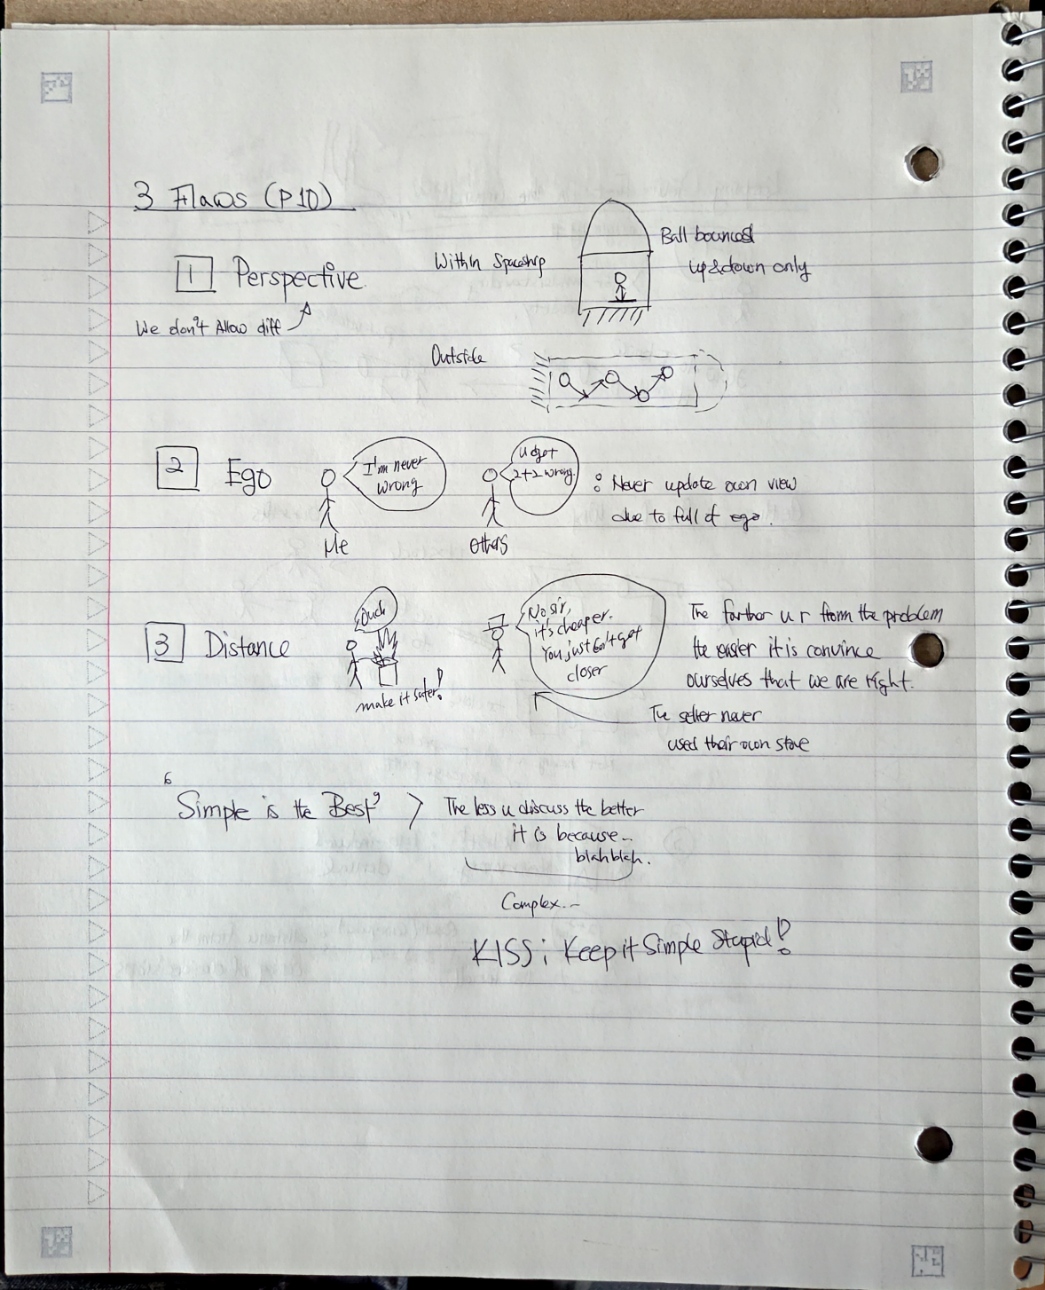 3 Flaws (P10)
1 Perspective
We don't Allow diff
Within Spaceship
Ball bounced
up&down only
Outside
2 Ego
I'm never
wrong
Me
u got
2+2 wrong
others
: Never update own view
due to full of ego.
3 Distance
Ouch
make it safer!
No sir,
it's cheaper.
You just get
closer
The farther u r from the problem
the easier it is convince
ourselves that we are right.
The seller never
used their own stove
'Simple is the Best' > The less u discuss the better
it is because...
blahblah.
Complex...
KISS; Keep it Simple Stupid!